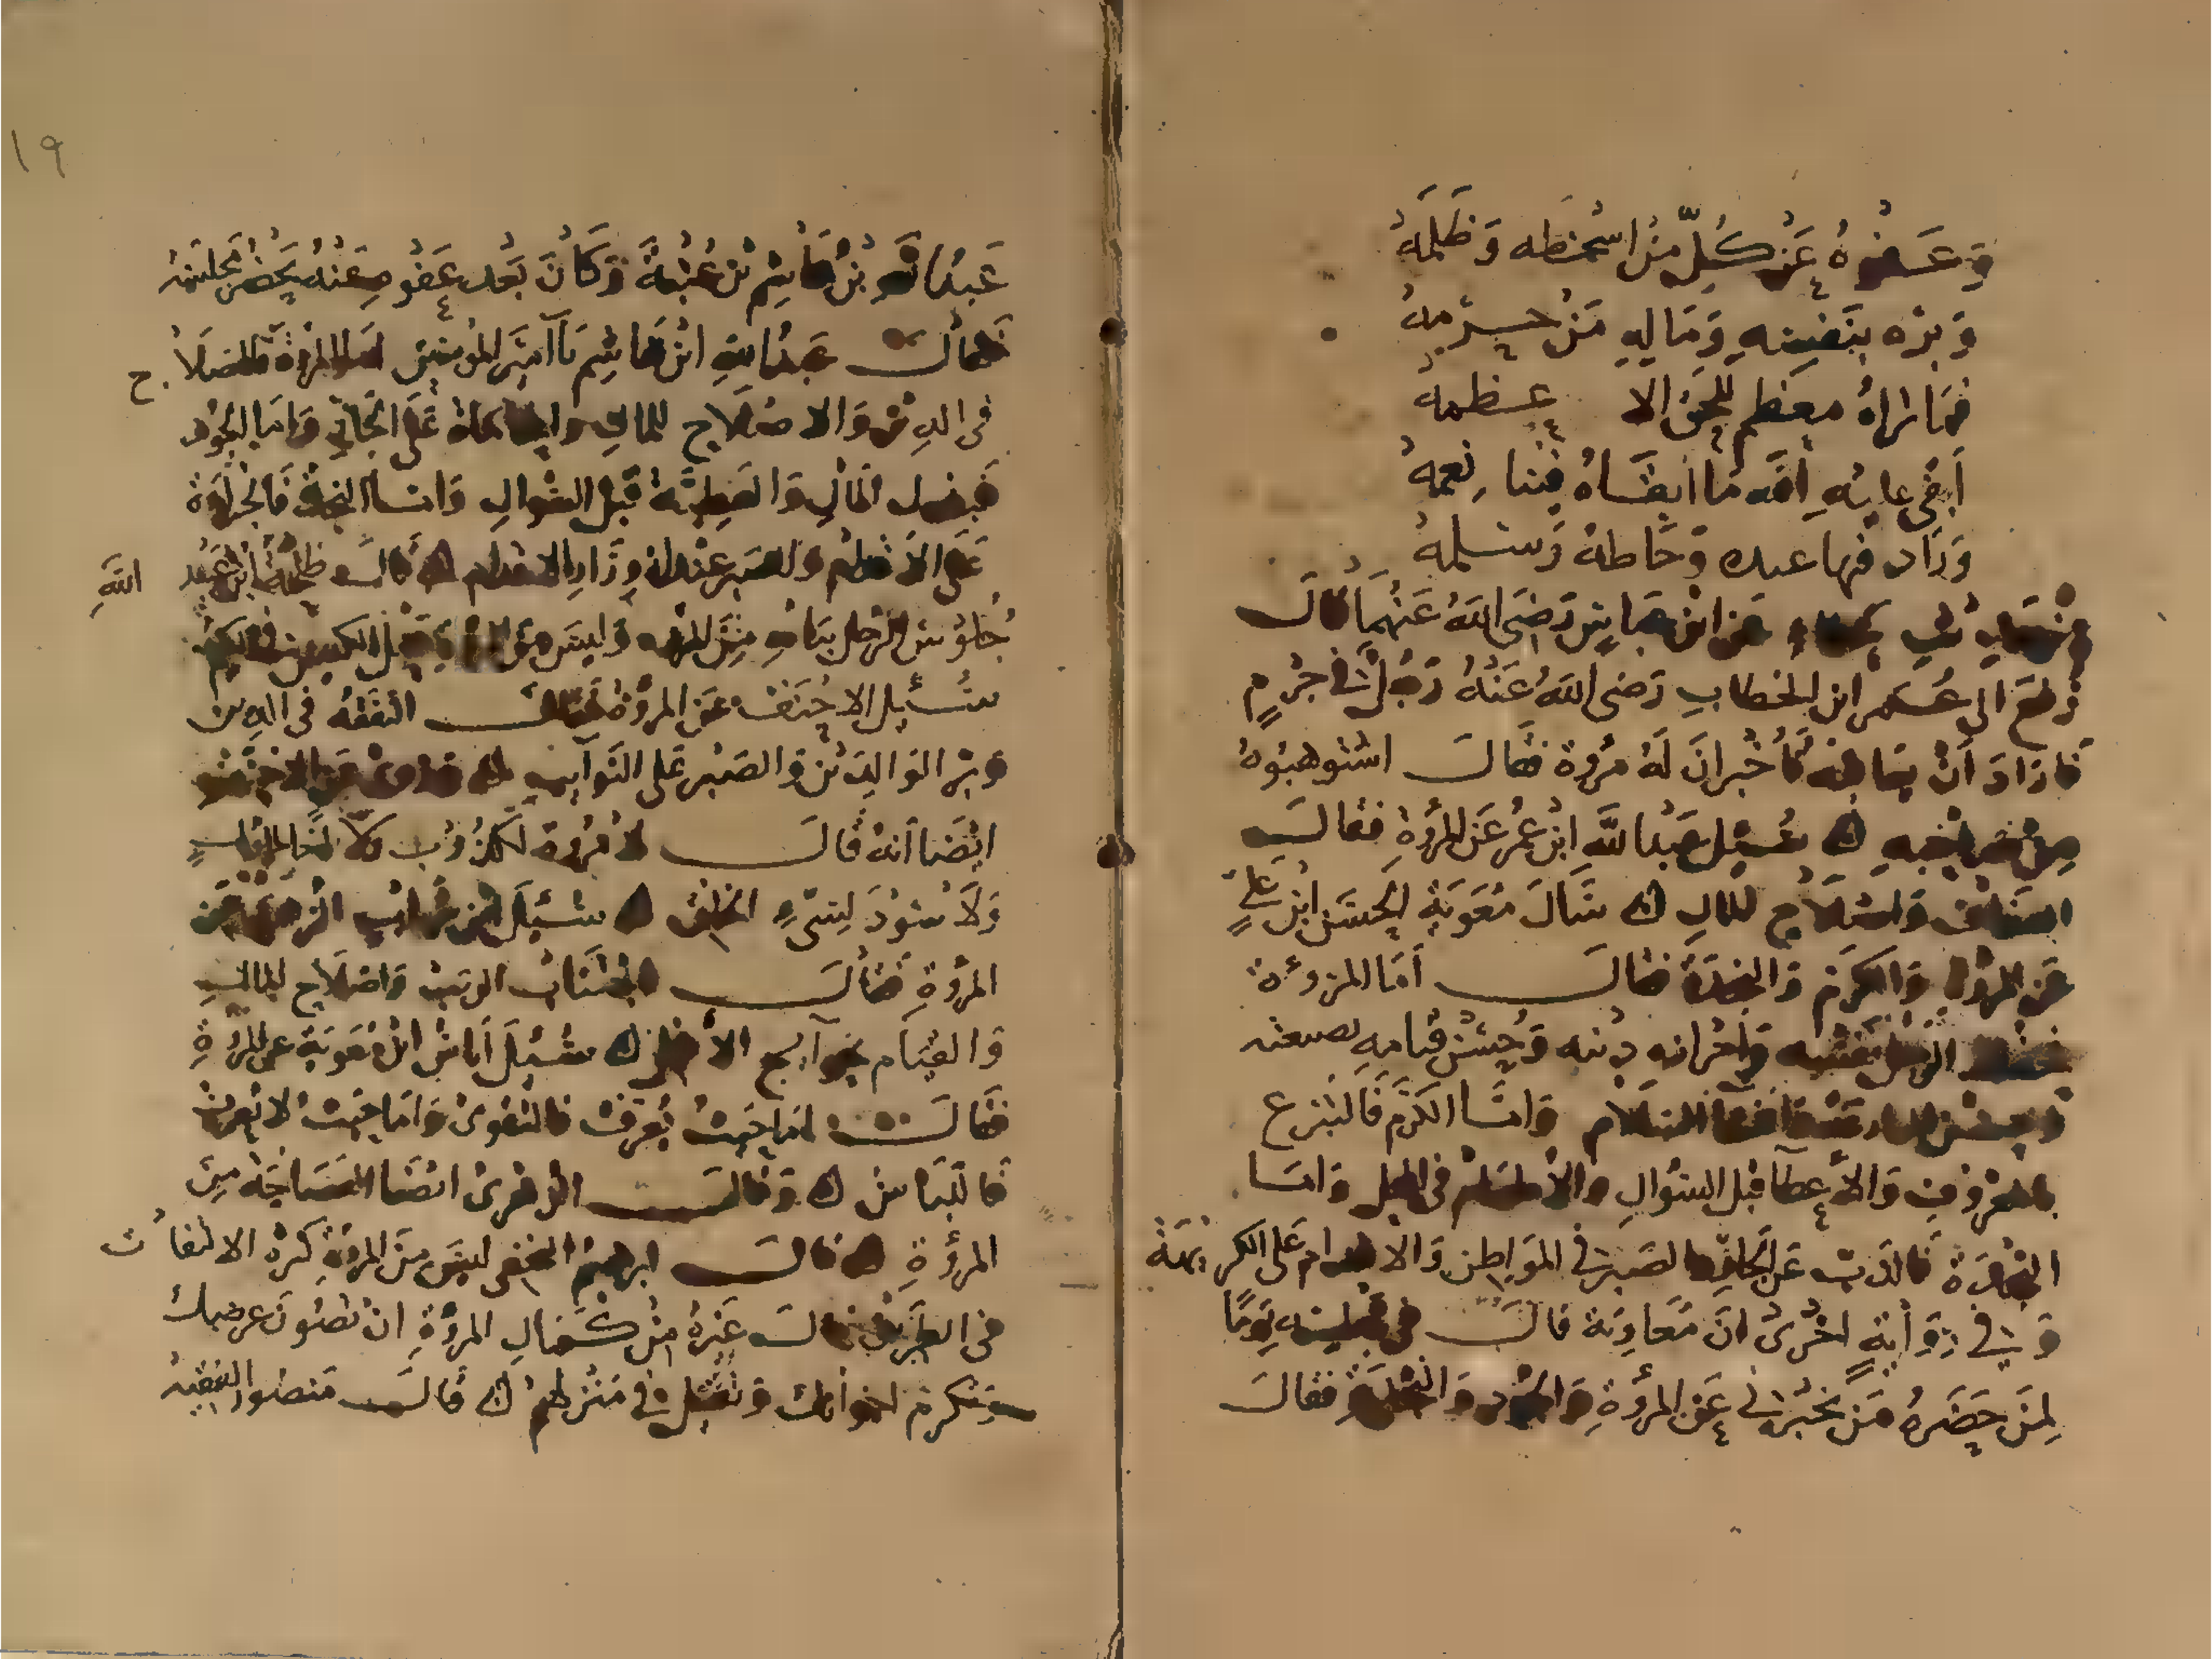 وعفوه عن كل من اسخطه وظلمه
وبره بنفسه وماله من حرمه
فما نراه معظم للحق الا عظمه
أبقى عليه الله ما ابقاه فينا نعمه
وزاد فيها عبده وحاطه وسلمه
عن ابن عباس رضي الله عنهما قال
رفع الى عمر ابن الخطاب رضي الله عنه رجل في جرم
فاراد أن يعاقبه فأخبر ان له مروة فقال استوهبوه
من خصمه ه سئل عبد الله ابن عمر عن المروة فقال
العفاف واصلاح المال ه سال معوية الحسن ابن علي
عن المروة والكرم والنجدة فقال أما المروءة
فحفظ الرجل نفسه واحرازه دينه وحسن قيامه بصنعته
السلام واما الكرم فالتبرع
بالمعروف والاعطآ قبل السوال والاطعام في المحل واما
النجدة فالذب عن الجار والصبر في المواطن والاقدام على الكريهة
وفي رواية اخرى ان معاوية قال في مجلسه يوما
لمن حضره من يخبرني عن المروة والجود والنجدة فقال
١٩
عبد الله بن هاشم بن عتبة وكان بعد عفوه عنه يحضر مجلسه
فقال عبد الله ابن هاشم يا أمير المومنين اما المروة فالصلاح
في الدين والاصلاح للمال والمحاماة على الجار واما الجود
فبذل المال والعطية قبل السوال واما النجدة فالجراة
على الاقدام والصبر عند ازورار الاقدام ه قال طلحة ابن عبيد الله
جلوس الرجل ببابه من المروه وليس من المروة حمل الكيس في الكم
سئل الاحنف عن المروة فقال التفقه في الدين
وبر الوالدين والصبر على النوايب ه وروى عن الاحنف
ايضا أنه قال لا مروة لكذوب ولا
ولا سودد لسيء الخلق ه سئل ابن شهاب الزهري عن
المروة فقال اجتناب الريب واصلاح المال
والقيام بحوآيج الأهل ه سئل أياس ابن معوية عن المروة
فقال اما حيث تعرف فالتقوى واما حيث لا تعرف
فاللباس ه وقال الزهرى ايضا الفصاحة من
المروة ه قال ابرهيم النخعي ليس من المروة كثرة الالتفات
في الطريق وقال غيره من كمال المروة ان تصون عرضك
وتكرم اخوانك وتقيل في منزلك ه قال منصور الفقيه